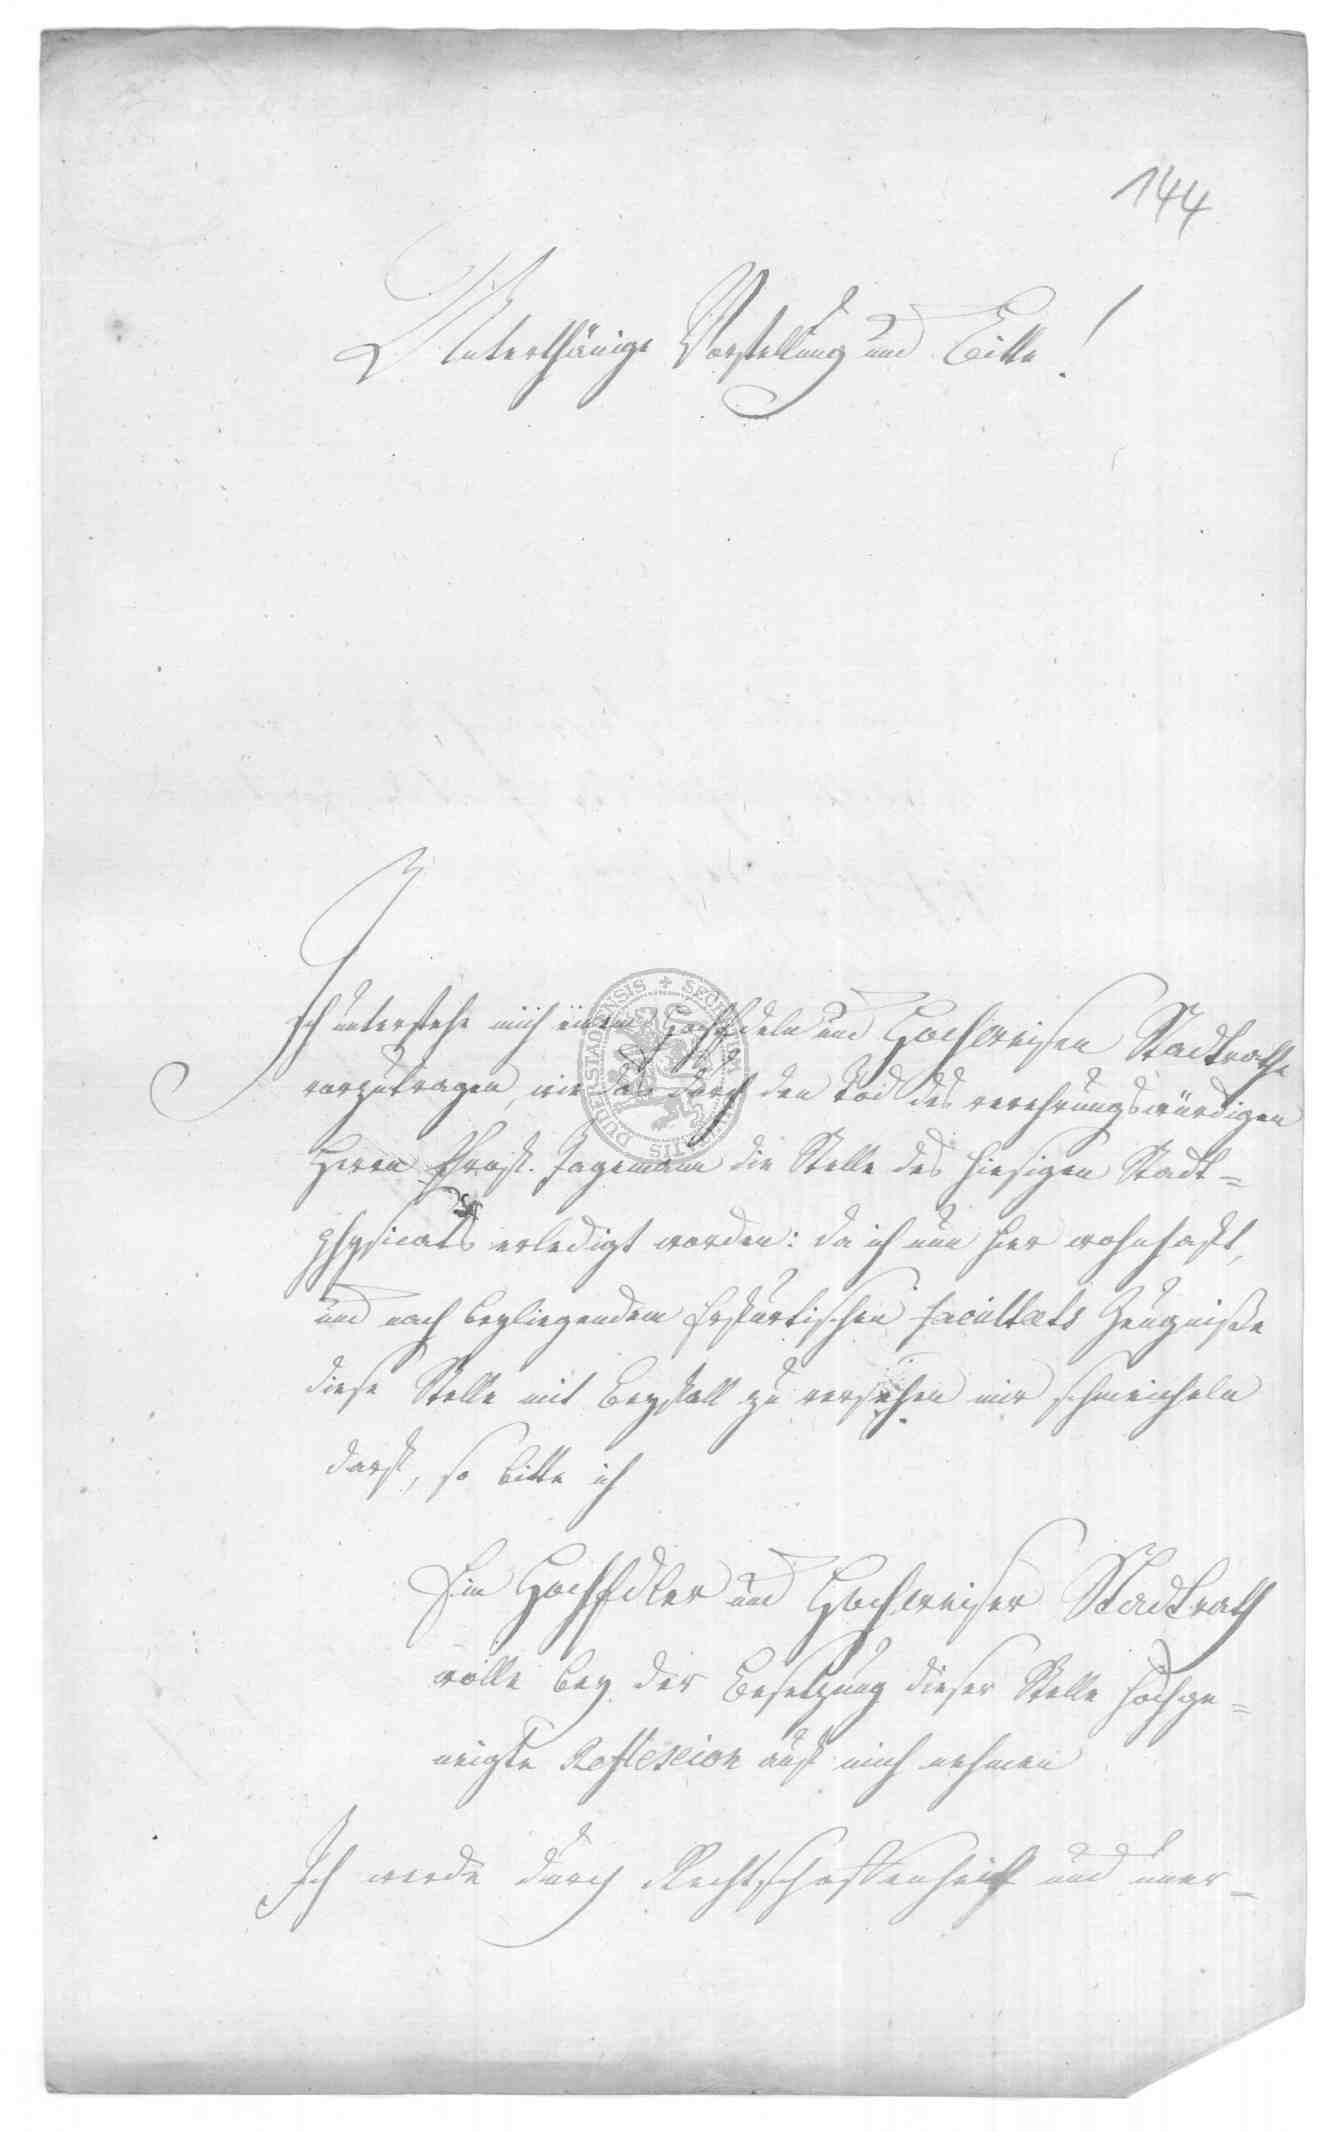 144
Unterthänige Vorstellung und Bitte!
Ich unterstehe mich einem HochEdeln und Hochweisen Stadtrathe
vorzutragen, wie daß durch den Tod des verehrungswürdigen
Herrn Jagemann die Stelle des hiesigen Stadt=
physicats erledigt worden: da ich nun hier wohnhaft,
und nach beyliegendem Erfurtischen Facultäts Zeugniße
diese Stelle mit Beyfall zu versehen mir schmeicheln
darf, so bitte ich
Ein HochEdler und Hochweiser Stadtrath
wolle bey der Besetzung dieser Stelle hochge=
neigte Reflexion auf mich nehmen
Ich werde durch Rechtschaffenheit und uner=